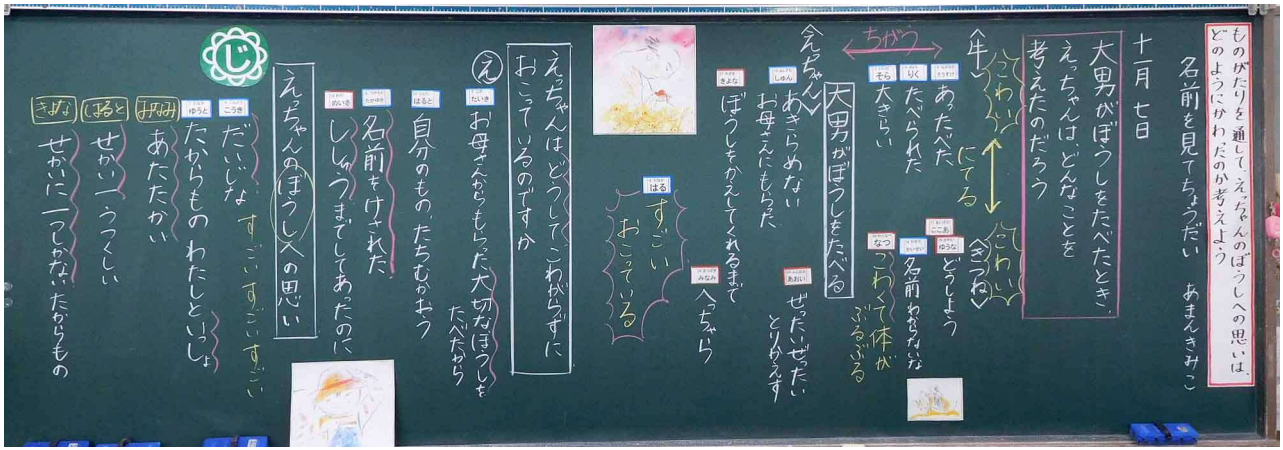 ものがたりを通して、えっちゃんのぼうしへの思いは、
どのようにかわったのか考えよう
名前を見てちょうだい　あまんきみこ
十一月七日
大男がぼうしをたべたとき、
えっちゃんは、どんなことを
考えたのだろう
こわい
にてる
こわい
〈牛〉
〈きつね〉
そうすけ
あのたべた
りく
たべられた
そら
大きらい
ちがう
ここあ
ゆうな
どうしよう
名前わからないな
なつ
こわくて体が
ぶるぶる
大男がぼうしをたべる
〈えっちゃん〉
しゅん
あきらめない
お母さんにもらった
きよな
ぼうしをかえしてくれるまで
あおい
ぜったいぜったい
とりかえす
みなみ
へっちゃら
はる
すごい
おこっている
えっちゃんは、どうしてこわがらずに
おこっているのですか
え
たいき
お母さんからもらった大切なぼうしを
たべたから
はると
自分のもの、たちむかおう
名前をけされた、
めいさ
ししゅうまでしてあったのに
えっちゃんのぼうしへの思い
じ
こうき
だいじな　すごいすごいすごい
ゆうと
たからもの　わたしといっしょ
みなみ
あたたかい
はると
せかい一うつくしい
きよな
せかいに一つしかないたからもの